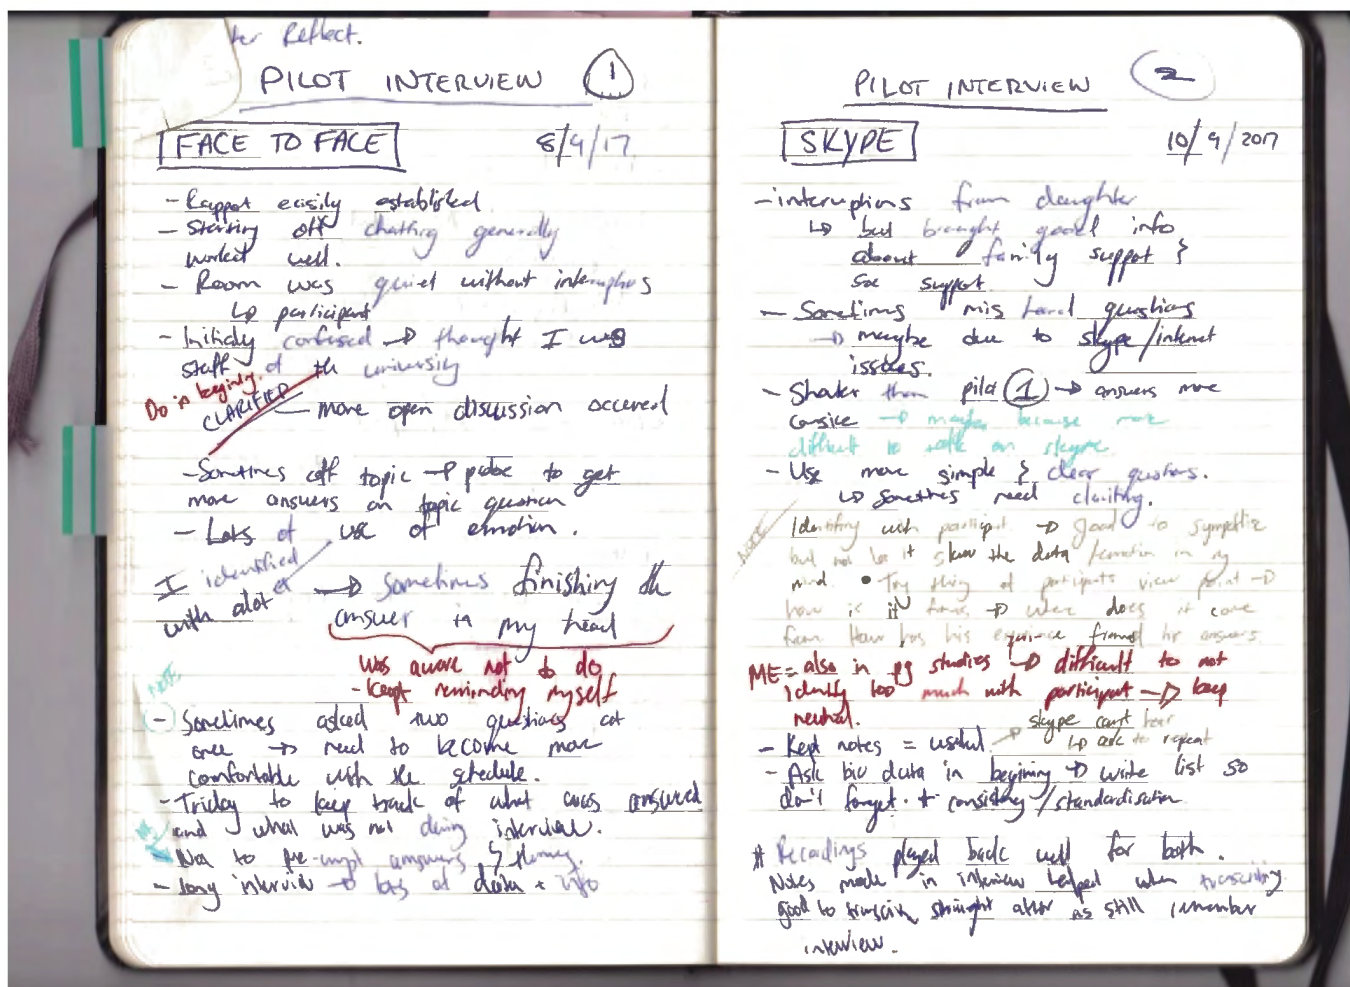 ter Reflect.
PILOT INTERVIEW 1
FACE TO FACE 8/9/17
- Rapport easily established
- Starting off chatting generally
worked well.
- Room was quiet without interruptions
↳ participant
- Initialy confused → thought I was
staff at the university
Do in begining.
CLARIFIED — more open discussion occured
- Sometimes off topic → probe to get
more answers on topic question
- Lots of use of emotion.
I identified
with alot → Sometimes finishing the
answer in my head
was aware not to do
- kept reminding myself
NOTE
- Sometimes asked two questions at
once → need to become more
comfortable with the schedule.
- Tricky to keep track of what was answered
and what was not during interview.
- Not to pre-empt answers &
- long interview → lots of data + info
PILOT INTERVIEW 2
SKYPE 10/9/2017
- interruptions from daughter
↳ but brought good info
about family support &
soc support.
- Sometimes mis heard questions
→ maybe due to skype/internet
issues.
- Shorter than pilot 1 → answers more
consice → maybe because more
difficult to talk on skype.
- Use more simple & clear questions.
↳ Sometimes need clarifing.
NOTE
Identifing with participant → good to sympathise
but not let it skew the data formation in my
mind. • Try thing of participants view point →
how is it framed → where does it come
from How has his experience framed his answers.
ME = also in pg studies → difficult to not
identify too much with participant → keep
neutral.
skype cant hear
- Kept notes = useful → ↳ ask to repeat
- Ask bio data in begining → write list so
don't forget. + consistency/standardisation
* Recordings played back well for both.
Notes made in interview helped when transcribing
good to transcribe straight after as still remember
interview.